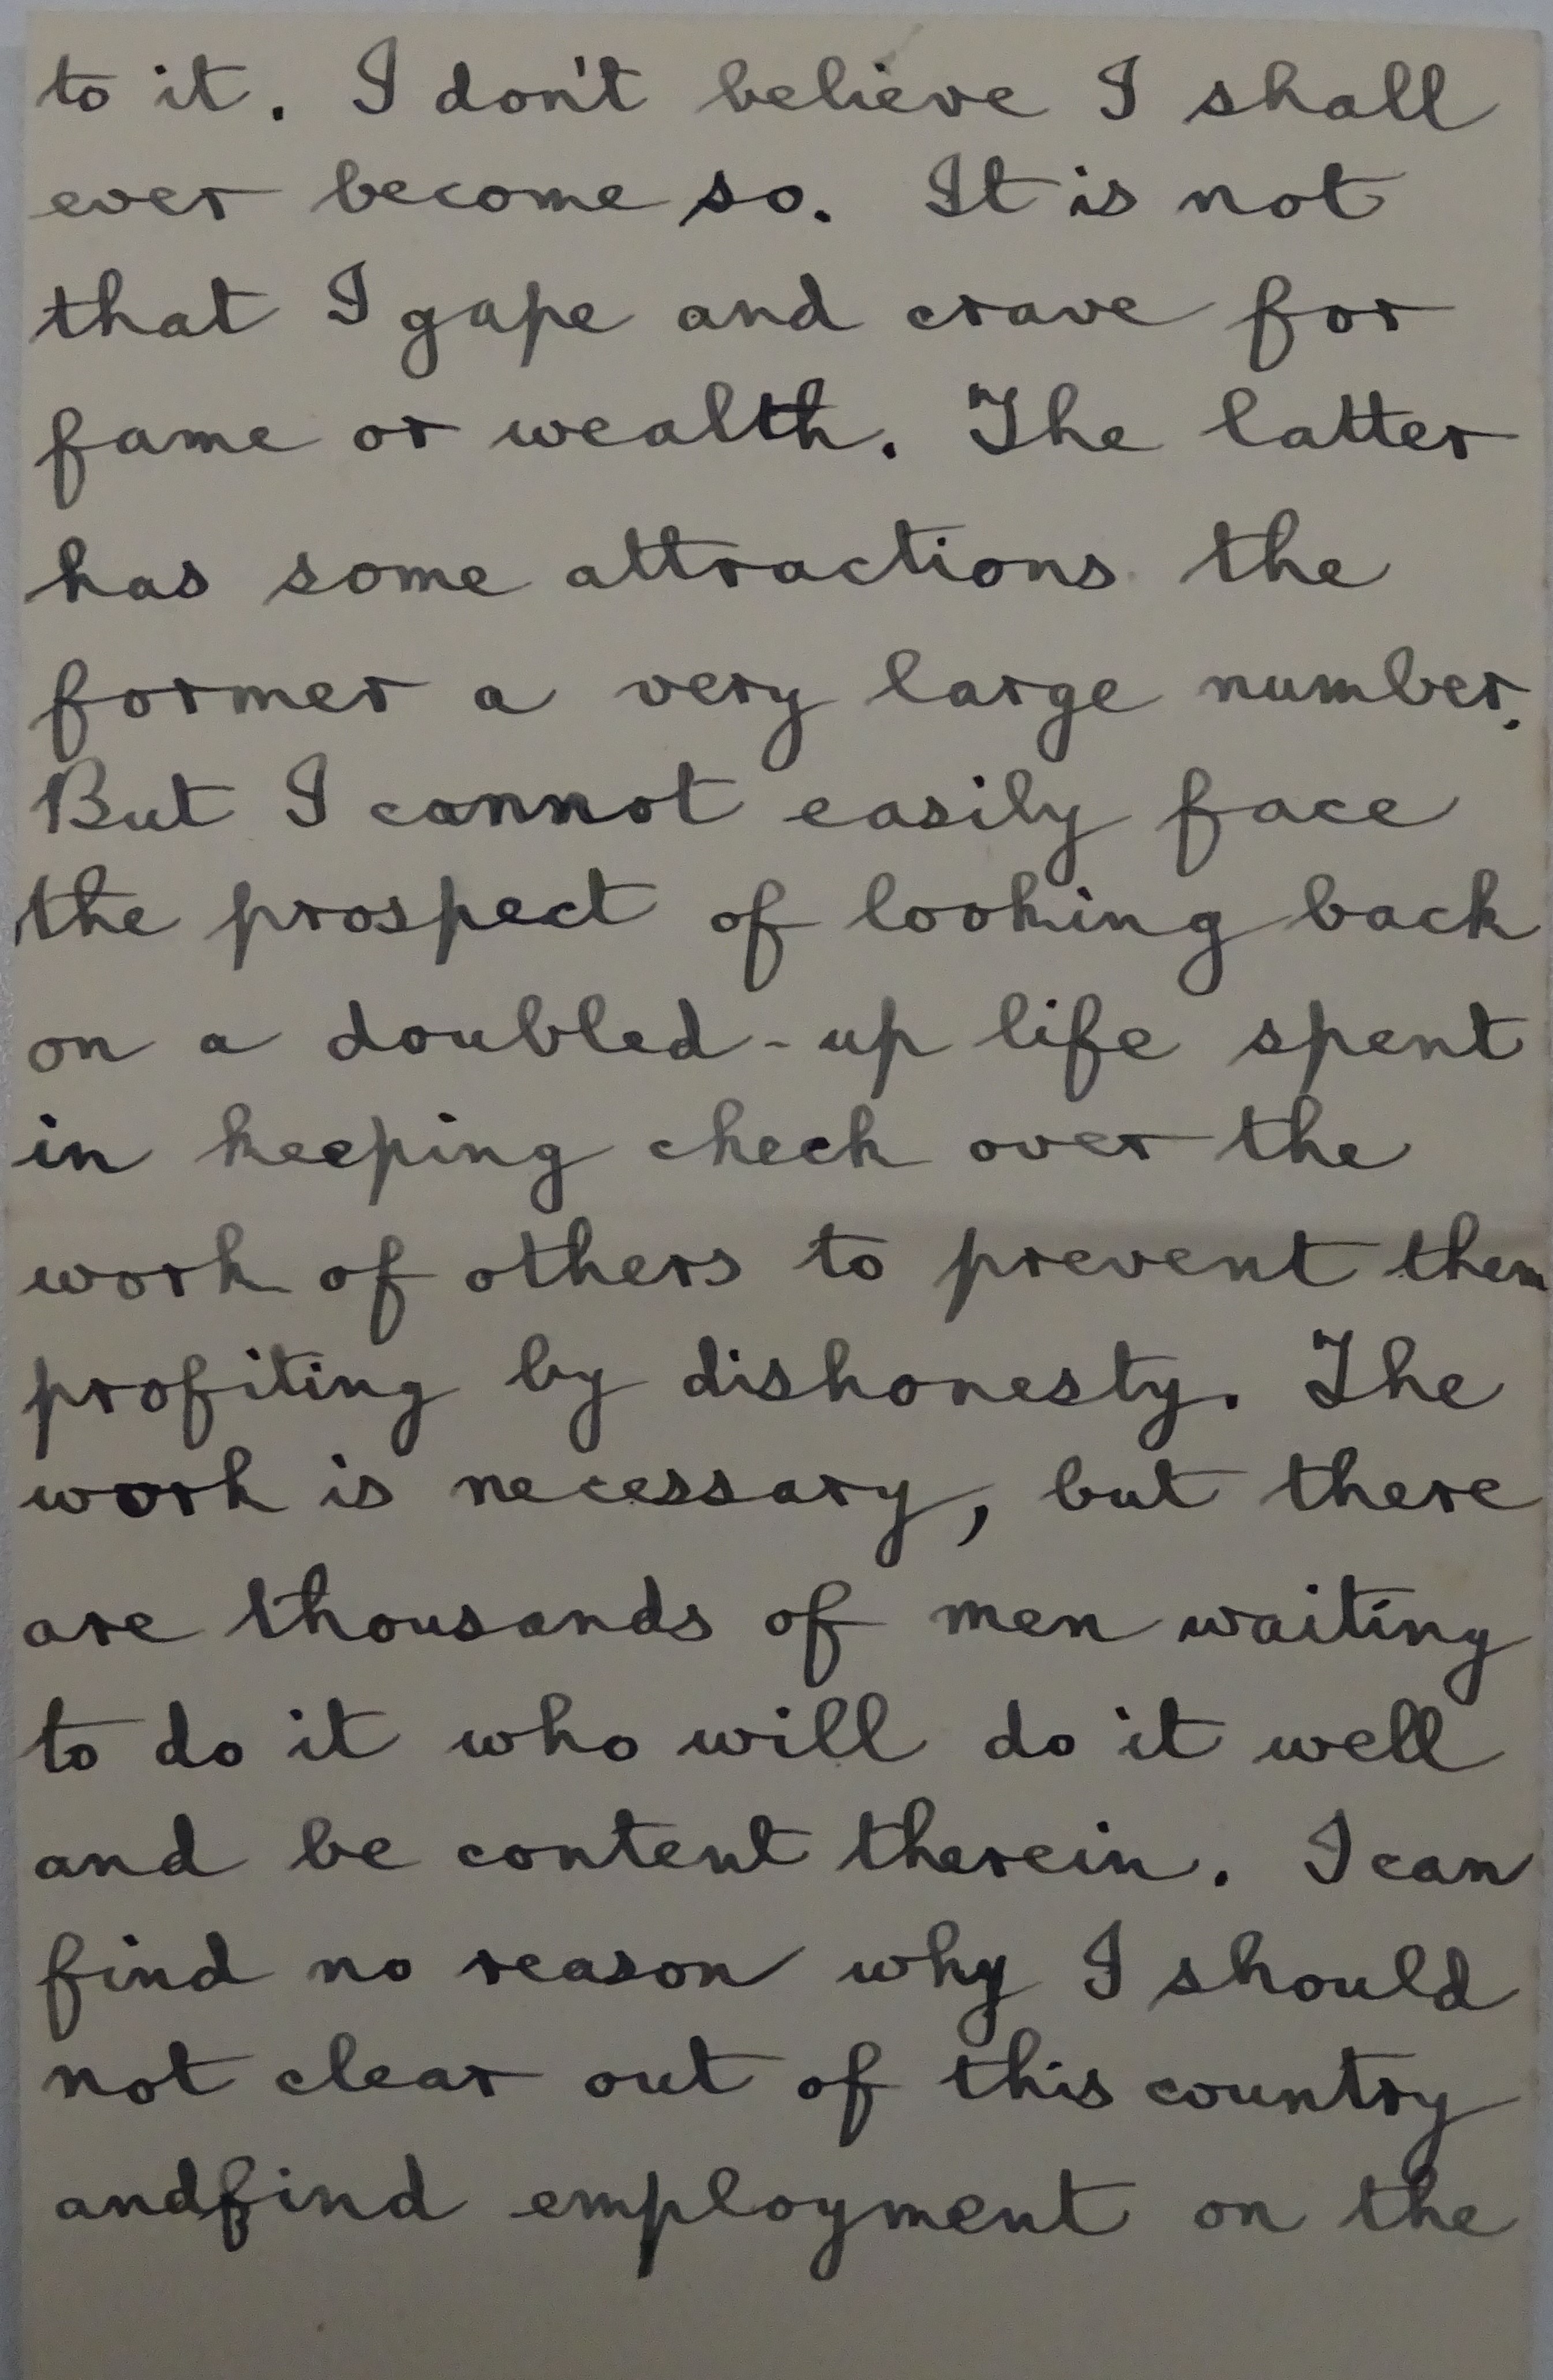 to it. I don't believe I shall
ever become so. It is not
that I gape and crave for
fame or wealth. The latter
has some attractions the
former a very large number.
But I cannot easily face
the prospect of looking back
on a doubled-up life spent
in keeping check over the
work of others to prevent them
profiting by dishonesty. The
work is necessary, but there
are thousands of men waiting
to do it who will do it well
and be content therein. I can
find no reason why I should
not clear out of this country
and find employment on the